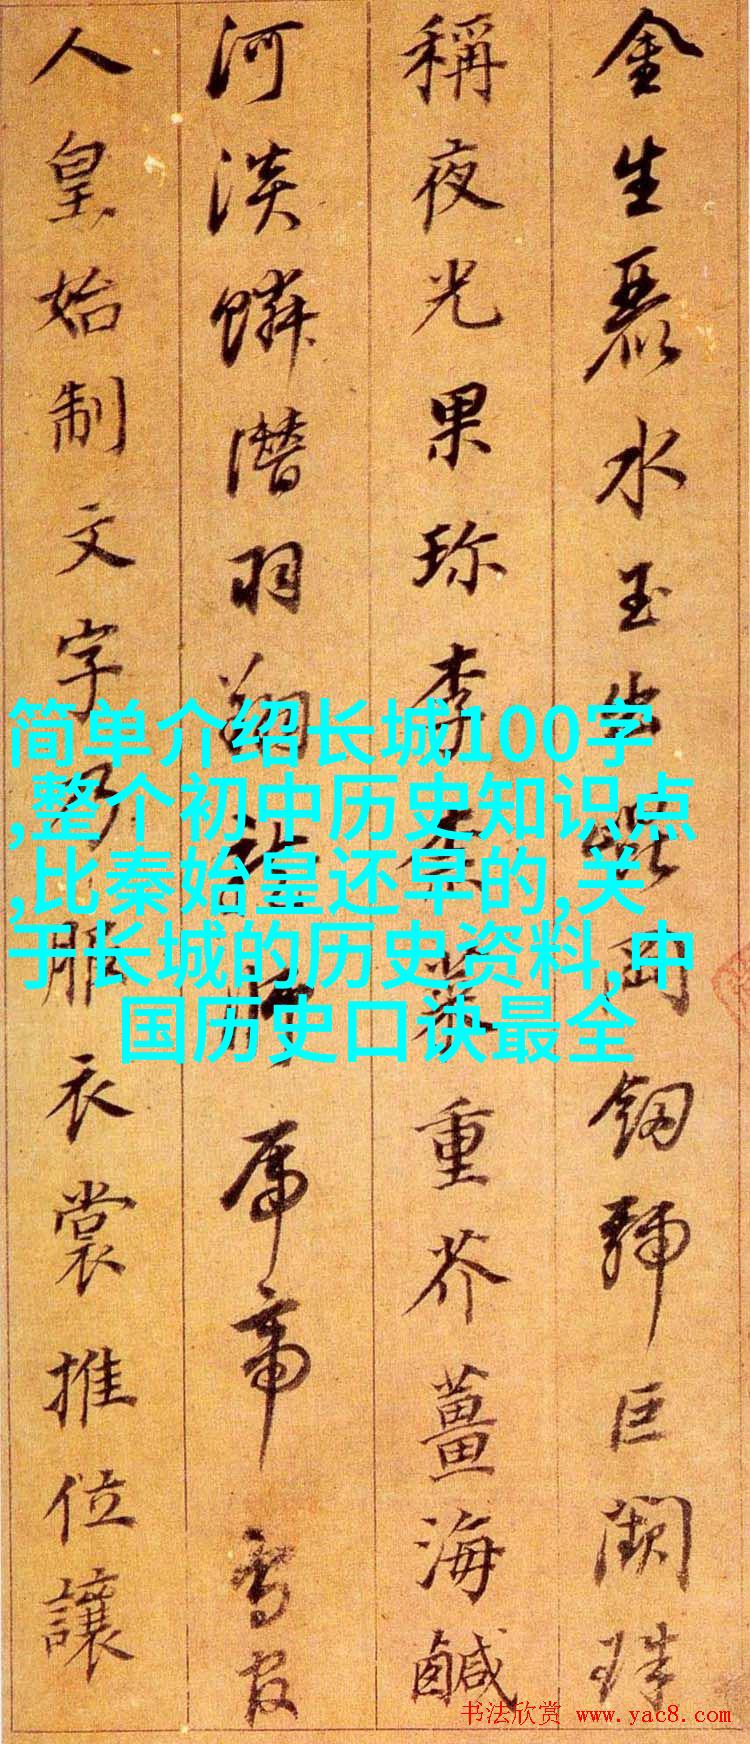 金生麗水玉出崑岡劒號巨闕珠
稱夜光果珍李柰菜重芥薑海鹹
河淡鱗潛羽翔帝鳥官
人皇始制文字乃服衣裳推位讓
简单介绍长城100字
,整个初中历史知识点
,比秦始皇还早的,关
于长城的历史资料,中
国历史口诀最全
书法欣赏 www.yac8.com